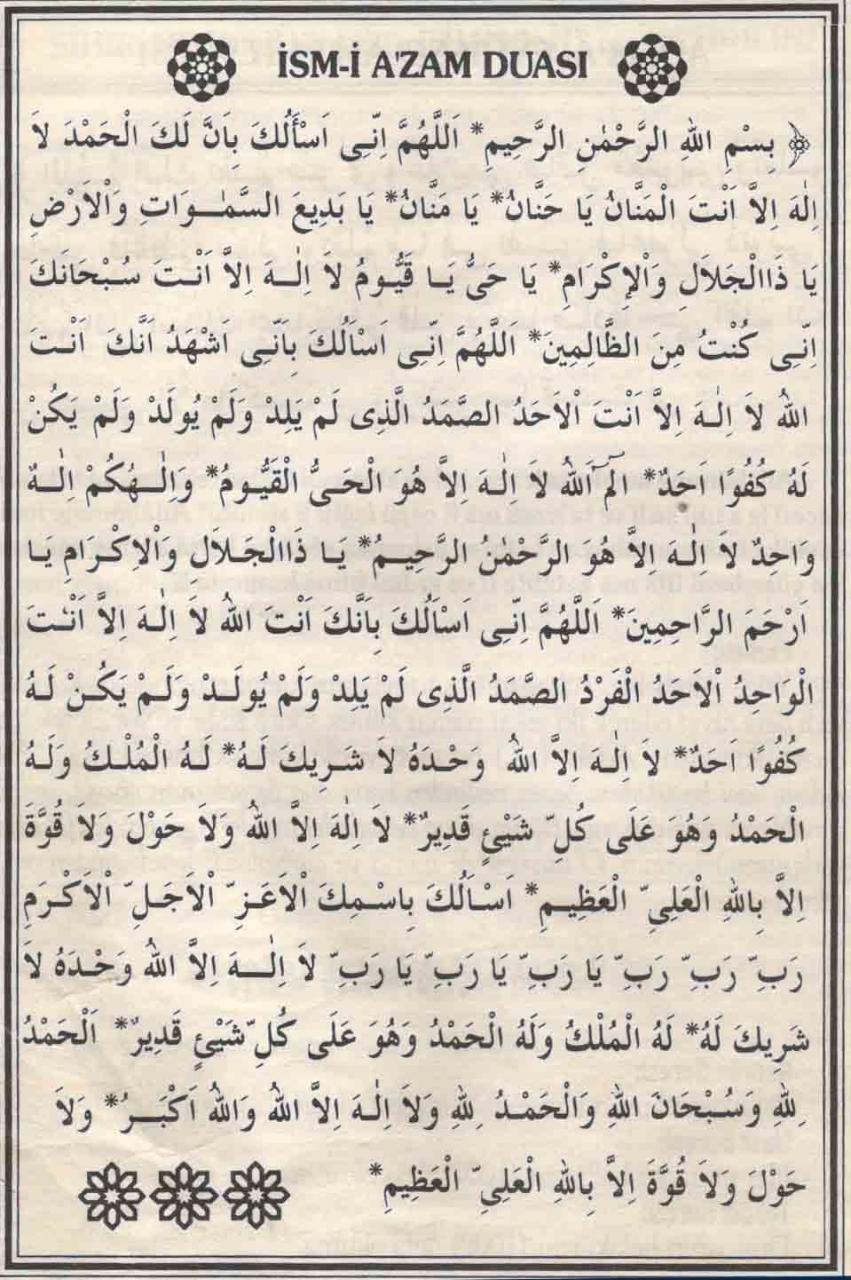 İSM-İ A'ZAM DUASI
﴿ بِسْمِ اللهِ الرَّحْمٰنِ الرَّحِيمِ* اَللَّهُمَّ اِنِّى اَسْأَلُكَ بِاَنَّ لَكَ الْحَمْدَ لاَ
اِلٰهَ اِلاَّ اَنْتَ الْمَنَّانُ يَا حَنَّانُ* يَا مَنَّانُ* يَا بَدِيعَ السَّمٰوَاتِ وَاْلاَرْضِ
يَا ذَاالْجَلاَلِ وَاْلاِكْرَامِ* يَا حَىُّ يَا قَيُّومُ لاَ اِلٰهَ اِلاَّ اَنْتَ سُبْحَانَكَ
اِنِّى كُنْتُ مِنَ الظَّالِمِينَ* اَللَّهُمَّ اِنِّى اَسْاَلُكَ بِاَنِّى اَشْهَدُ اَنَّكَ اَنْتَ
اللهُ لاَ اِلٰهَ اِلاَّ اَنْتَ اْلاَحَدُ الصَّمَدُ الَّذِى لَمْ يَلِدْ وَلَمْ يُولَدْ وَلَمْ يَكُنْ
لَهُ كُفُوًا اَحَدٌ* الٓمٓ اَللهُ لاَ اِلٰهَ اِلاَّ هُوَ الْحَىُّ الْقَيُّومُ* وَاِلٰهُكُمْ اِلٰهٌ
وَاحِدٌ لاَ اِلٰهَ اِلاَّ هُوَ الرَّحْمٰنُ الرَّحِيمُ* يَا ذَاالْجَلاَلِ وَاْلاِكْرَامِ يَا
اَرْحَمَ الرَّاحِمِينَ* اَللَّهُمَّ اِنِّى اَسْاَلُكَ بِاَنَّكَ اَنْتَ اللهُ لاَ اِلٰهَ اِلاَّ اَنْتَ
الْوَاحِدُ اْلاَحَدُ الْفَرْدُ الصَّمَدُ الَّذِى لَمْ يَلِدْ وَلَمْ يُولَدْ وَلَمْ يَكُنْ لَهُ
كُفُوًا اَحَدٌ* لاَ اِلٰهَ اِلاَّ اللهُ وَحْدَهُ لاَ شَرِيكَ لَهُ* لَهُ الْمُلْكُ وَلَهُ
الْحَمْدُ وَهُوَ عَلَى كُلِّ شَيْئٍ قَدِيرٌ* لاَ اِلٰهَ اِلاَّ اللهُ وَلاَ حَوْلَ وَلاَ قُوَّةَ
اِلاَّ بِاللهِ الْعَلِىِّ الْعَظِيمِ* اَسْاَلُكَ بِاسْمِكَ اْلاَعَزِّ اْلاَجَلِّ اْلاَكْرَمِ
رَبِّ رَبِّ رَبِّ يَا رَبِّ يَا رَبِّ يَا رَبِّ لاَ اِلٰهَ اِلاَّ اللهُ وَحْدَهُ لاَ
شَرِيكَ لَهُ* لَهُ الْمُلْكُ وَلَهُ الْحَمْدُ وَهُوَ عَلَى كُلِّ شَيْئٍ قَدِيرٌ* اَلْحَمْدُ
ِللهِ وَسُبْحَانَ اللهِ وَالْحَمْدُ ِللهِ وَلاَ اِلٰهَ اِلاَّ اللهُ وَاللهُ اَكْبَرُ* وَلاَ
حَوْلَ وَلاَ قُوَّةَ اِلاَّ بِاللهِ الْعَلِىِّ الْعَظِيمِ*